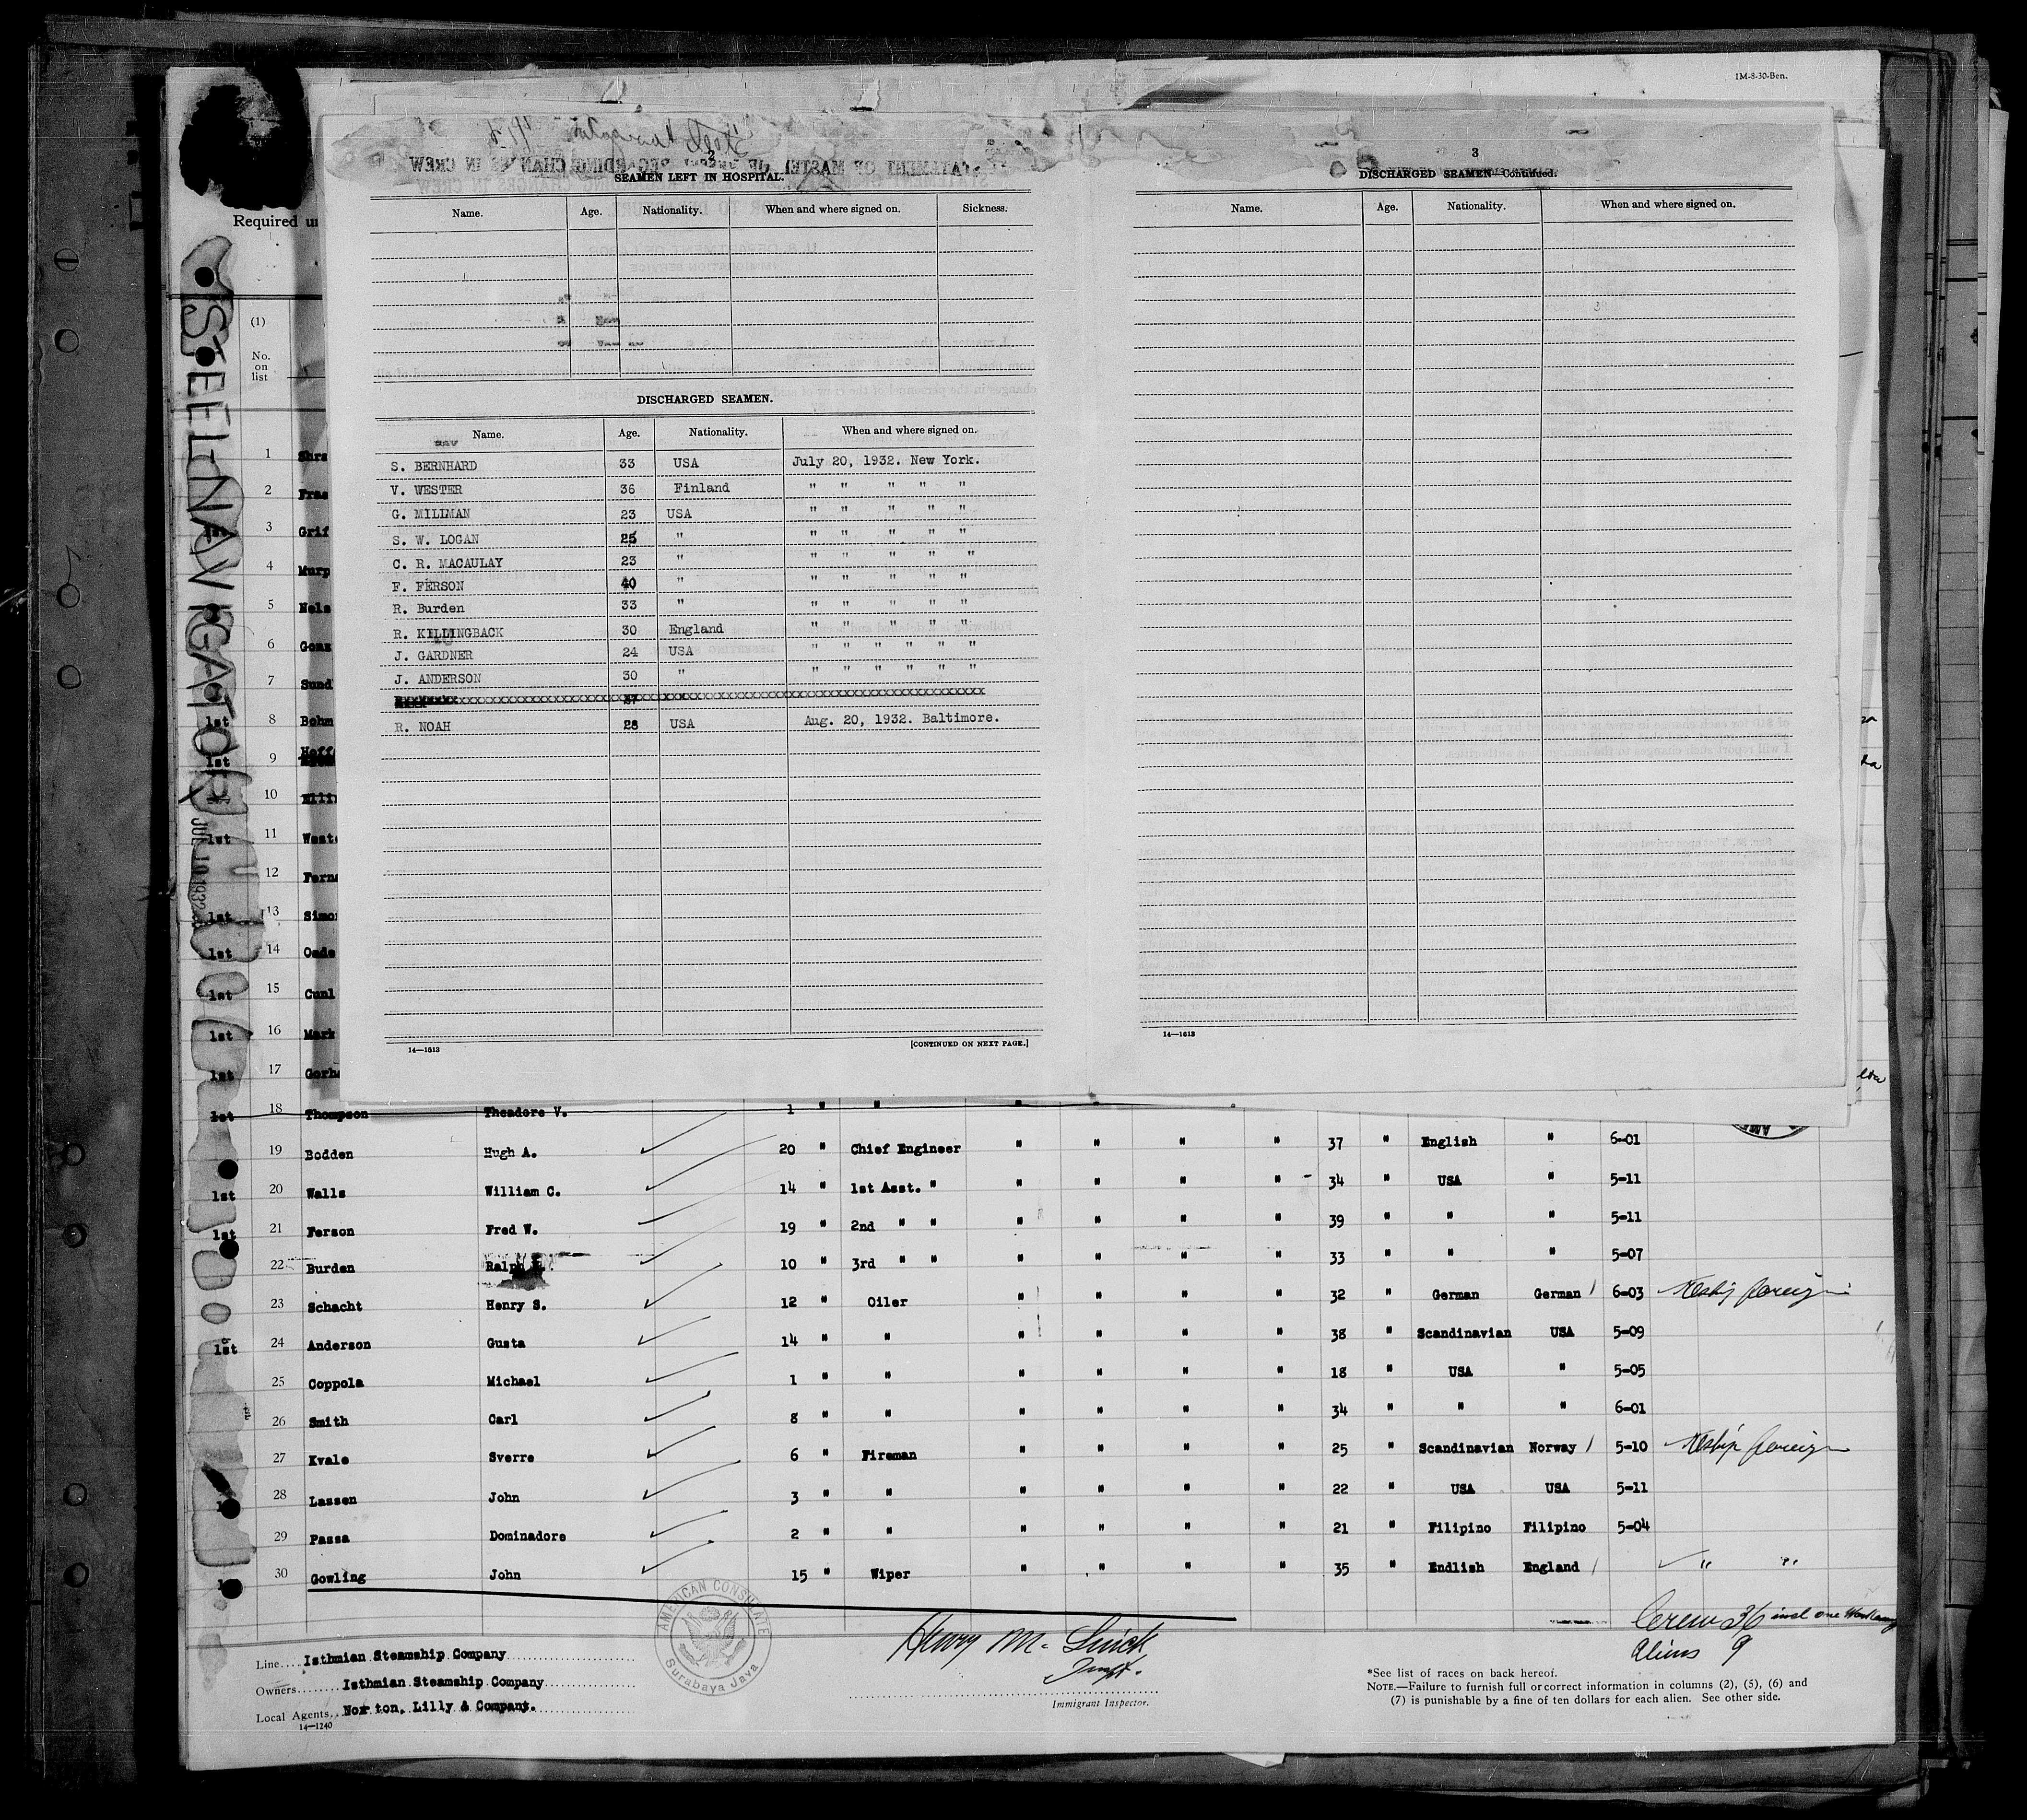 1M-8-30-Ben.
3
SEAMEN LEFT IN HOSPITAL.
Name. Age. Nationality. When and where signed on. Sickness.
DISCHARGED SEAMEN.
Name. Age. Nationality. When and where signed on.
S. BERNHARD 33 USA July 20, 1932. New York.
V. WESTER 36 Finland " " " " "
G. MILLMAN 23 USA " " " " "
S. W. LOGAN 25 " " " " " "
C. R. MACAULAY 23 " " " " " "
F. FERSON 40 " " " " " "
R. Burden 33 " " " " " "
R. KILLINGBACK 30 England " " " " "
J. GARDNER 24 USA " " " " " "
J. ANDERSON 30 " " " " " " "
R. NOAH 28 USA Aug. 20, 1932. Baltimore.
14—1613 [CONTINUED ON NEXT PAGE.]
3
DISCHARGED SEAMEN—Continued.
Name. Age. Nationality. When and where signed on.
14—1613
Required un
STEEL NAVIGATOR
JUL 19 1932
(1)
No. on list
1 Shrs
2 Fras
3 Grif
4 Murp
5 Nels
6 Gonz
7 Sund
1st 8 Bohm
1st 9 Hoff
10
1st 11 Weste
12 Ferna
1st 13 Simon
1st 14 Oade
1st 15 Cunl
1st 16 Mark
1st 17 Gorha
1st 18 Thompson Theadore V. 1 " " " "
19 Bodden Hugh A. 20 " Chief Engineer " " " " 37 " English " 6-01
1st 20 Walls William C. 14 " 1st Asst. " " " " " 34 " USA " 5-11
1st 21 Ferson Fred W. 19 " 2nd " " " " " " 39 " " " 5-11
22 Burden Ralph 10 " 3rd " " " " " " 33 " " " 5-07
23 Schacht Henry S. 12 " Oiler " " " " 32 " German German 6-03 Reship foreign
1st 24 Anderson Gusta 14 " " " " " " 38 " Scandinavian USA 5-09
25 Coppola Michael 1 " " " " " " 18 " USA " 5-05
26 Smith Carl 8 " " " " " " 34 " " " 6-01
27 Kvale Sverre 6 " Fireman " " " " 25 " Scandinavian Norway 5-10 Reship foreign
28 Lassen John 3 " " " " " " 22 " USA USA 5-11
29 Passa Dominadore 2 " " " " " " 21 " Filipino Filipino 5-04
30 Gowling John 15 " Wiper " " " " 35 " Endlish England " "
Crew 36 incl one Workaway
Aliens 9
Line Isthmian Steamship Company
Owners Isthmian Steamship Company
Local Agents Norton, Lilly & Company.
14—1240
AMERICAN CONSULATE
Surabaya Java
Immigrant Inspector.
*See list of races on back hereof.
NOTE.—Failure to furnish full or correct information in columns (2), (5), (6) and
(7) is punishable by a fine of ten dollars for each alien. See other side.